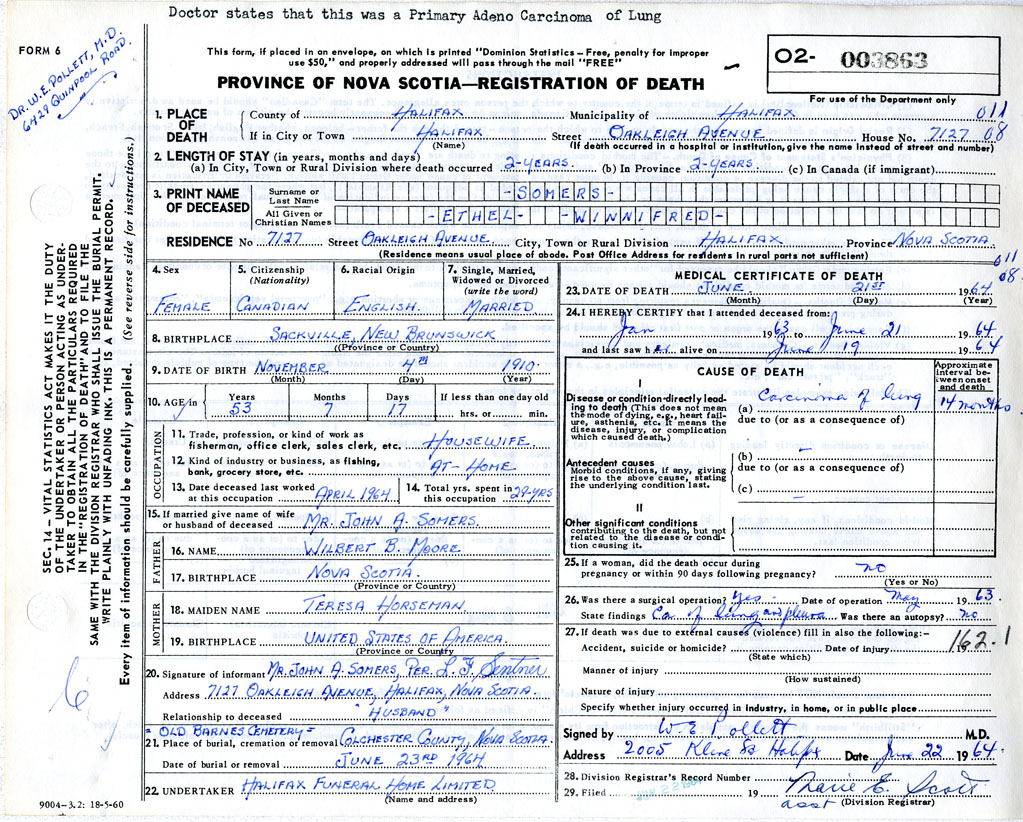 Doctor states that this was a Primary Adeno Carcinoma of Lung
FORM 6
DR. W. E. POLLETT, M.D.
6429 QUINPOOL ROAD.
This form, if placed in an envelope, on which is printed "Dominion Statistics – Free, penalty for improper
use $50," and properly addressed will pass through the mail "FREE"
PROVINCE OF NOVA SCOTIA—REGISTRATION OF DEATH
O2- 003863
For use of the Department only
1. PLACE OF DEATH
County of HALIFAX Municipality of HALIFAX 011
If in City or Town HALIFAX Street OAKLEIGH AVENUE House No. 7127 08
(Name) (If death occurred in a hospital or institution, give the name instead of street and number)
2. LENGTH OF STAY (in years, months and days)
(a) In City, Town or Rural Division where death occurred 2-YEARS. (b) In Province 2-YEARS. (c) In Canada (if immigrant)
3. PRINT NAME OF DECEASED
Surname or Last Name -SOMERS-
All Given or Christian Names -ETHEL- -WINNIFRED-
RESIDENCE No 7127 Street OAKLEIGH AVENUE City, Town or Rural Division HALIFAX Province NOVA SCOTIA
(Residence means usual place of abode. Post Office Address for residents in rural parts not sufficient)
011
08
4. Sex
FEMALE
5. Citizenship (Nationality)
CANADIAN
6. Racial Origin
ENGLISH.
7. Single, Married, Widowed or Divorced (write the word)
MARRIED
8. BIRTHPLACE SACKVILLE, NEW BRUNSWICK
(Province or Country)
9. DATE OF BIRTH NOVEMBER 4th 1910.
(Month) (Day) (Year)
10. AGE
Years Months Days If less than one day old
53 7 17 hrs. or min.
OCCUPATION
11. Trade, profession, or kind of work as
fisherman, office clerk, sales clerk, etc. HOUSEWIFE.
12. Kind of industry or business, as fishing,
bank, grocery store, etc. AT-HOME
13. Date deceased last worked
at this occupation APRIL 1964
14. Total yrs. spent in
this occupation 29-YRS
15. If married give name of wife
or husband of deceased MR. JOHN A. SOMERS.
FATHER
16. NAME WILBERT B. MOORE
17. BIRTHPLACE NOVA SCOTIA.
(Province or Country)
MOTHER
18. MAIDEN NAME TERESA HORSEMAN.
19. BIRTHPLACE UNITED STATES OF AMERICA.
(Province or Country)
20. Signature of informant MR. JOHN A. SOMERS, PER. L. F. Sentner
Address 7127 OAKLEIGH AVENUE, HALIFAX, NOVA SCOTIA.
Relationship to deceased "HUSBAND"
"OLD BARNES CEMETERY"
21. Place of burial, cremation or removal COLCHESTER COUNTY, NOVA SCOTIA.
Date of burial or removal JUNE 23RD 1964
22. UNDERTAKER HALIFAX FUNERAL HOME LIMITED
(Name and address)
MEDICAL CERTIFICATE OF DEATH
23. DATE OF DEATH JUNE 21ST 1964
(Month) (Day) (Year)
24. I HEREBY CERTIFY that I attended deceased from:
Jan 1963 to June 21 1964
and last saw her alive on June 19 1964
CAUSE OF DEATH
Approximate interval between onset and death
I
Disease or condition directly leading to death (This does not mean the mode of dying, e.g., heart failure, asthenia, etc. It means the disease, injury, or complication which caused death.)
(a) Carcinoma of lung 14 months
due to (or as a consequence of)
Antecedent causes
Morbid conditions, if any, giving rise to the above cause, stating the underlying condition last.
(b) –
due to (or as a consequence of)
(c) –
II
Other significant conditions
contributing to the death, but not related to the disease or condition causing it.
25. If a woman, did the death occur during
pregnancy or within 90 days following pregnancy? no
(Yes or No)
26. Was there a surgical operation? Yes - Date of operation May 1963.
State findings Ca. of lung and pleura Was there an autopsy? no
27. If death was due to external causes (violence) fill in also the following:–
162.1
Accident, suicide or homicide? Date of injury 19
(State which)
Manner of injury
(How sustained)
Nature of injury
Specify whether injury occurred in industry, in home, or in public place
Signed by W. E. Pollett M.D.
Address 2005 Kline St Halifx Date June 22 1964.
28. Division Registrar's Record Number
29. Filed JUN 22 1964 19 Marie E. Scott
asst (Division Registrar)
SEC. 14 – VITAL STATISTICS ACT MAKES IT THE DUTY
OF THE UNDERTAKER OR PERSON ACTING AS UNDER-
TAKER TO OBTAIN ALL THE PARTICULARS REQUIRED
IN THE "REGISTRATION OF DEATH" AND TO FILE THE
SAME WITH THE DIVISION REGISTRAR WHO SHALL ISSUE THE BURIAL PERMIT.
WRITE PLAINLY WITH UNFADING INK. THIS IS A PERMANENT RECORD.
Every item of information should be carefully supplied. (See reverse side for instructions.)
6
9004–3.2: 18-5-60